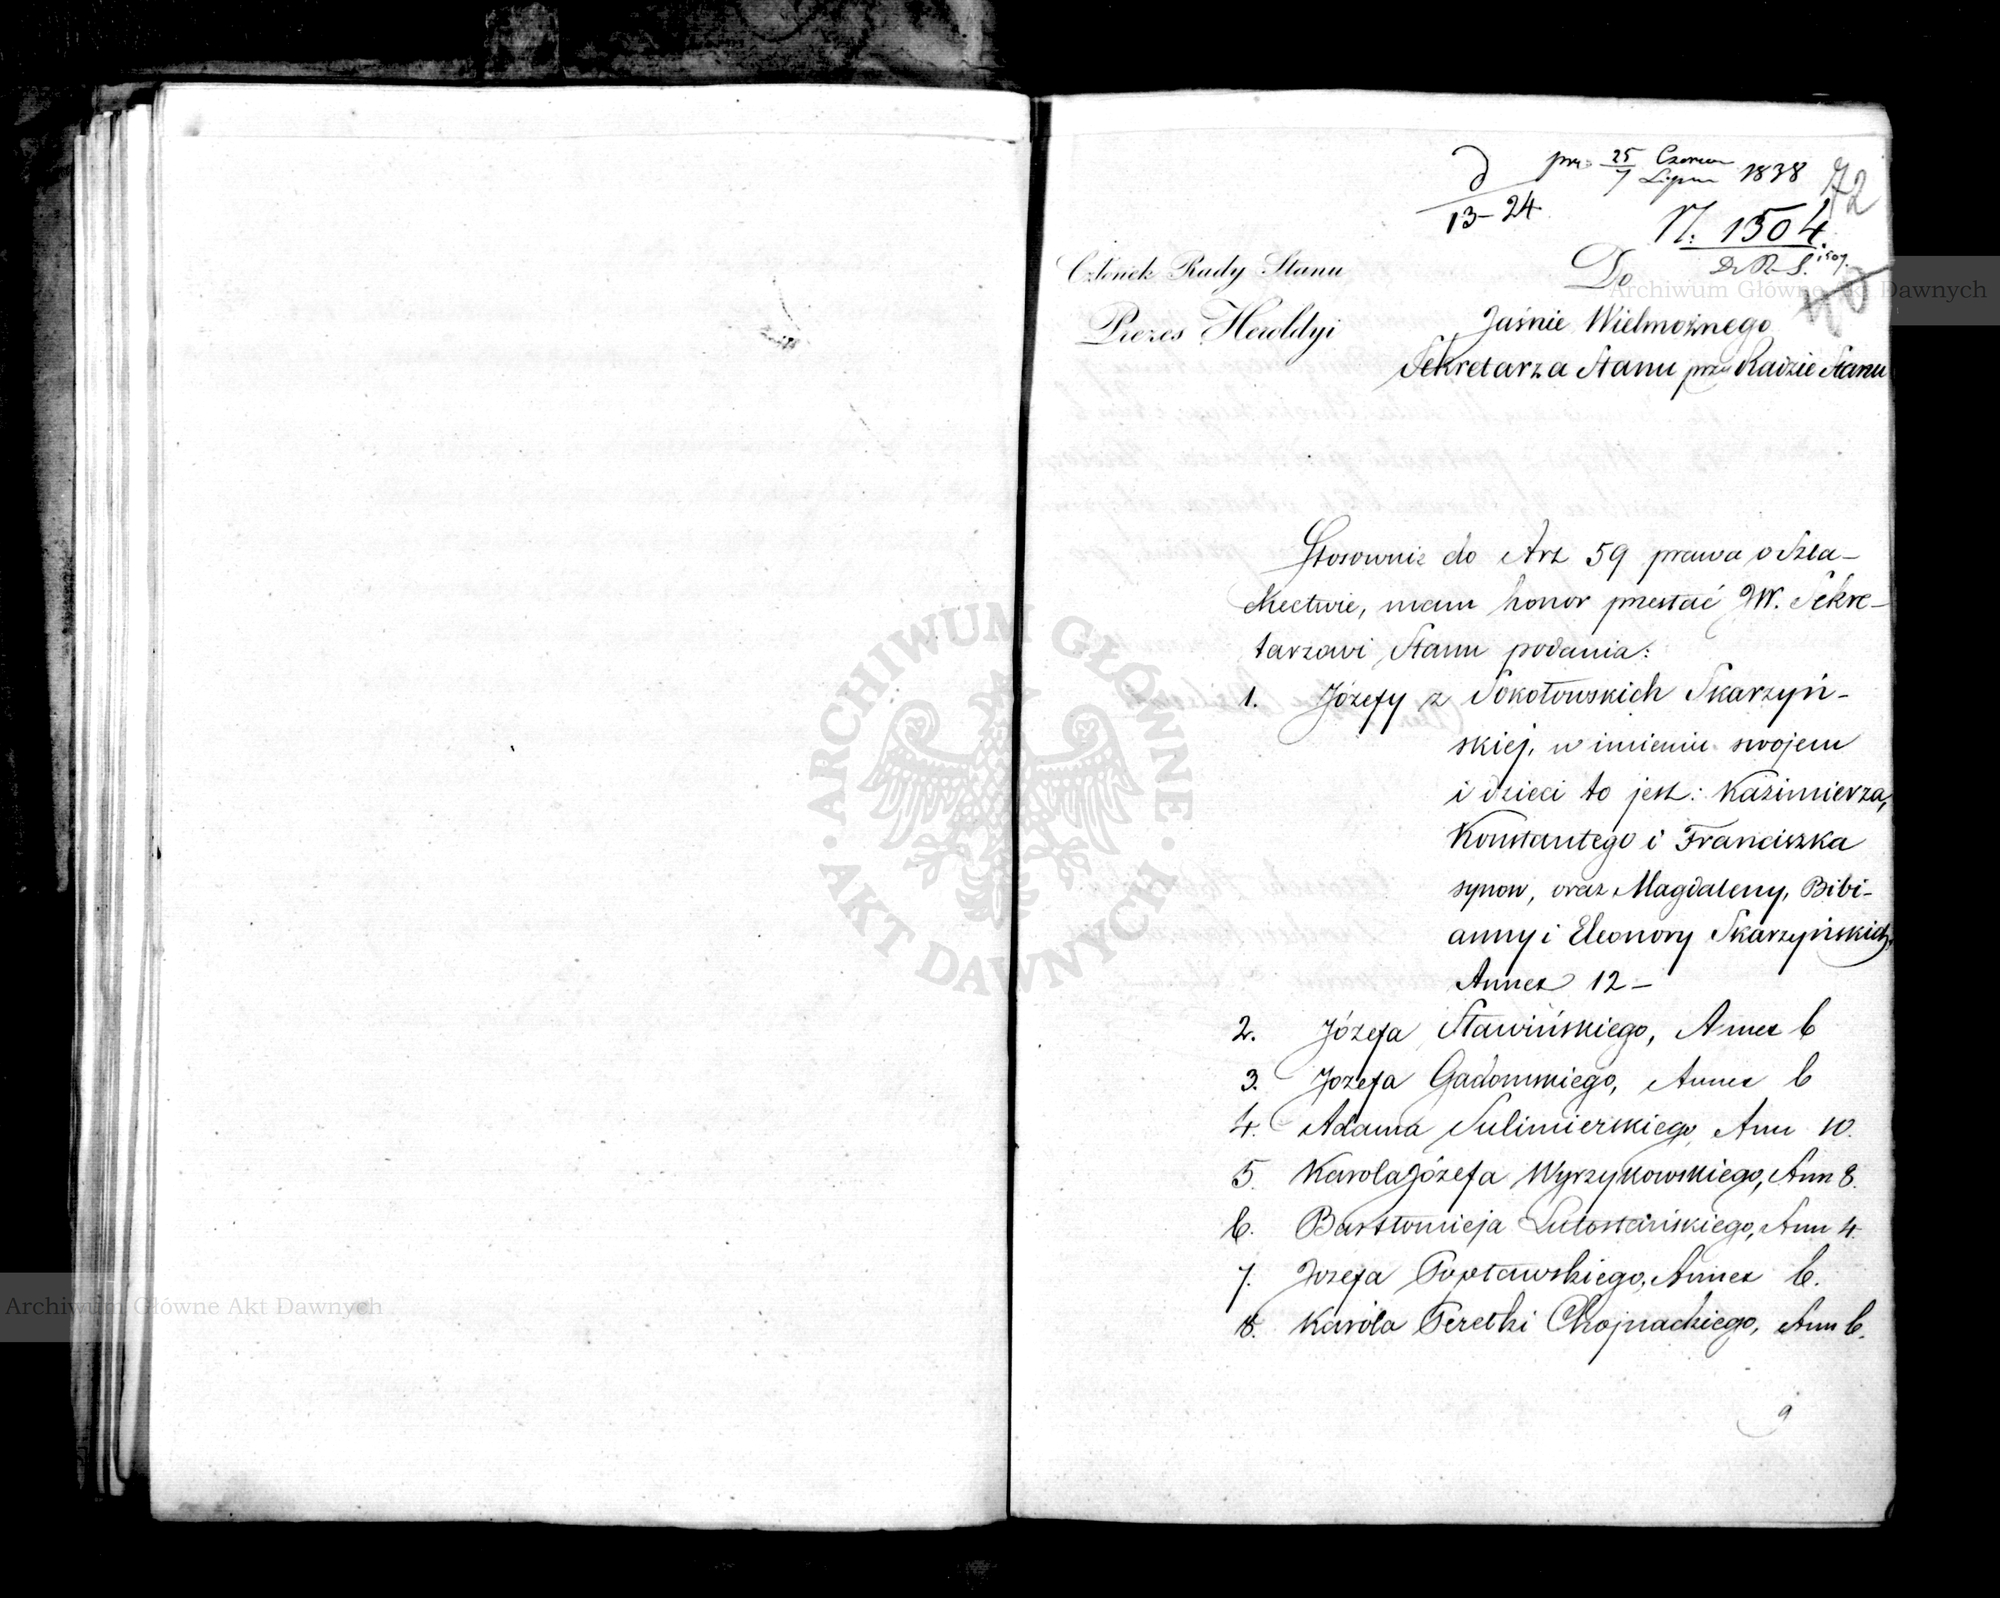 pr: 25/7 Czerwca Lipca 1838
72
13-24
N. 1504.
Członek Rady Stanu
Prezes Heroldyi
Do
Jaśnie Wielmożnego
Sekretarza Stanu przy Radzie Stanu
Stosownie do Art 59 prawa o Szla-
chectwie, mam honor przesłać JW. Sekre-
tarzowi Stanu podania:
1. Józefy z Sokołowskich Skarzyń-
skiej, w imieniu swojem
i dzieci to jest: Kazimierza,
Konstantego i Franciszka
synow, oraz Magdaleny, Bibi-
anny i Eleonory Skarzyńskich,
Annex 12-
2. Józefa Sławińskiego, Annex 6
3. Jozefa Gadomskiego, Annex 6
4. Adama Sulimierskiego Ann 10.
5. Karola Józefa Wyrzykowskiego, Ann 8.
6. Bartłomieja Lutostańskiego, Ann 4.
7. Jozefa Popławskiego, Annex 6.
8. Karola Peretki Chojnackiego, Ann 6.
9
Archiwum Główne Akt Dawnych
ARCHIWUM GŁÓWNE AKT DAWNYCH
Archiwum Główne Akt Dawnych